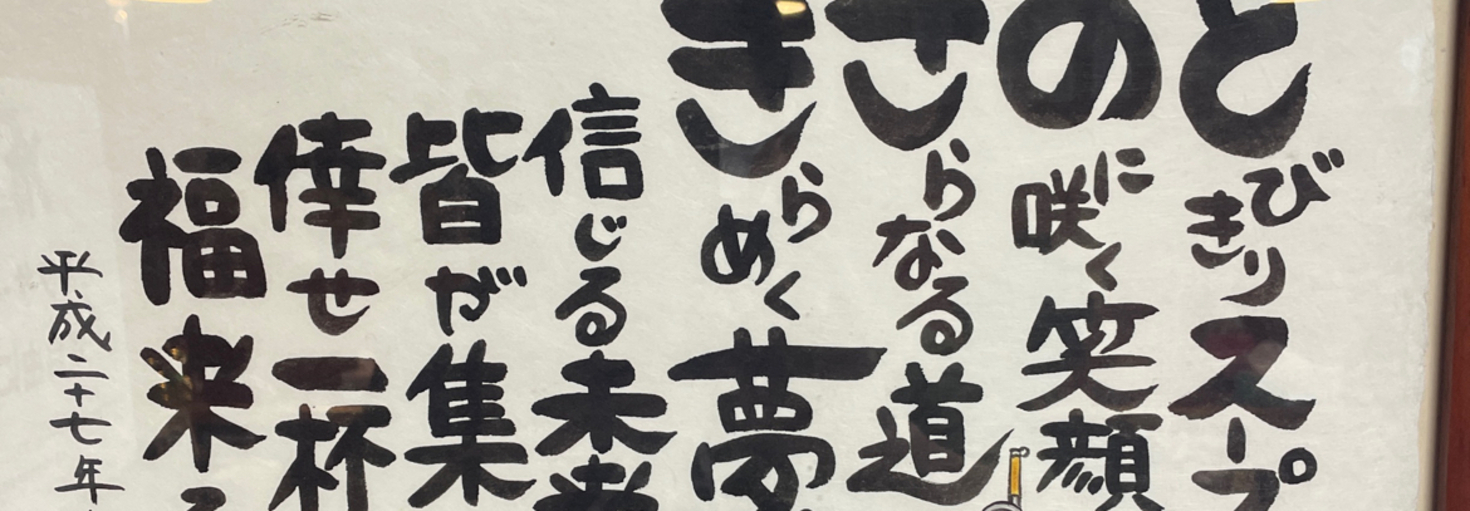 とびきりスープ
のに咲く笑顔
さらなる道
きらめく夢
信じる未来
皆が集
倖せ一杯
福来る
平成二十七年